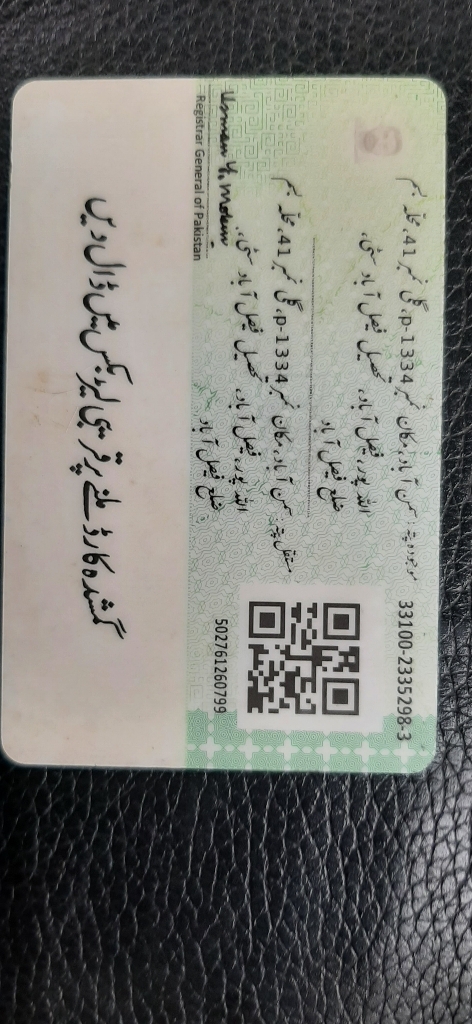 33100-2335298-3
موجودہ پتہ: سمن آباد، مکان نمبر p-1334، گلی نمبر 41، محلہ بسم
اللہ پور، فیصل آباد، تحصیل فیصل آباد سٹی،
ضلع فیصل آباد
مستقل پتہ: سمن آباد، مکان نمبر p-1334، گلی نمبر 41، محلہ بسم
اللہ پور، فیصل آباد، تحصیل فیصل آباد سٹی،
ضلع فیصل آباد
502761260799
Usman Y. Mobin
Registrar General of Pakistan
گمشدہ کارڈ ملنے پر قریبی لیٹر بکس میں ڈال دیں